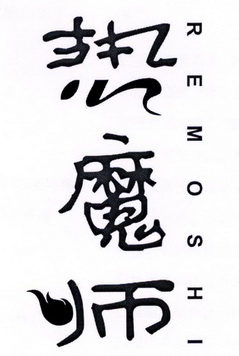 热魔师
REMOSHI